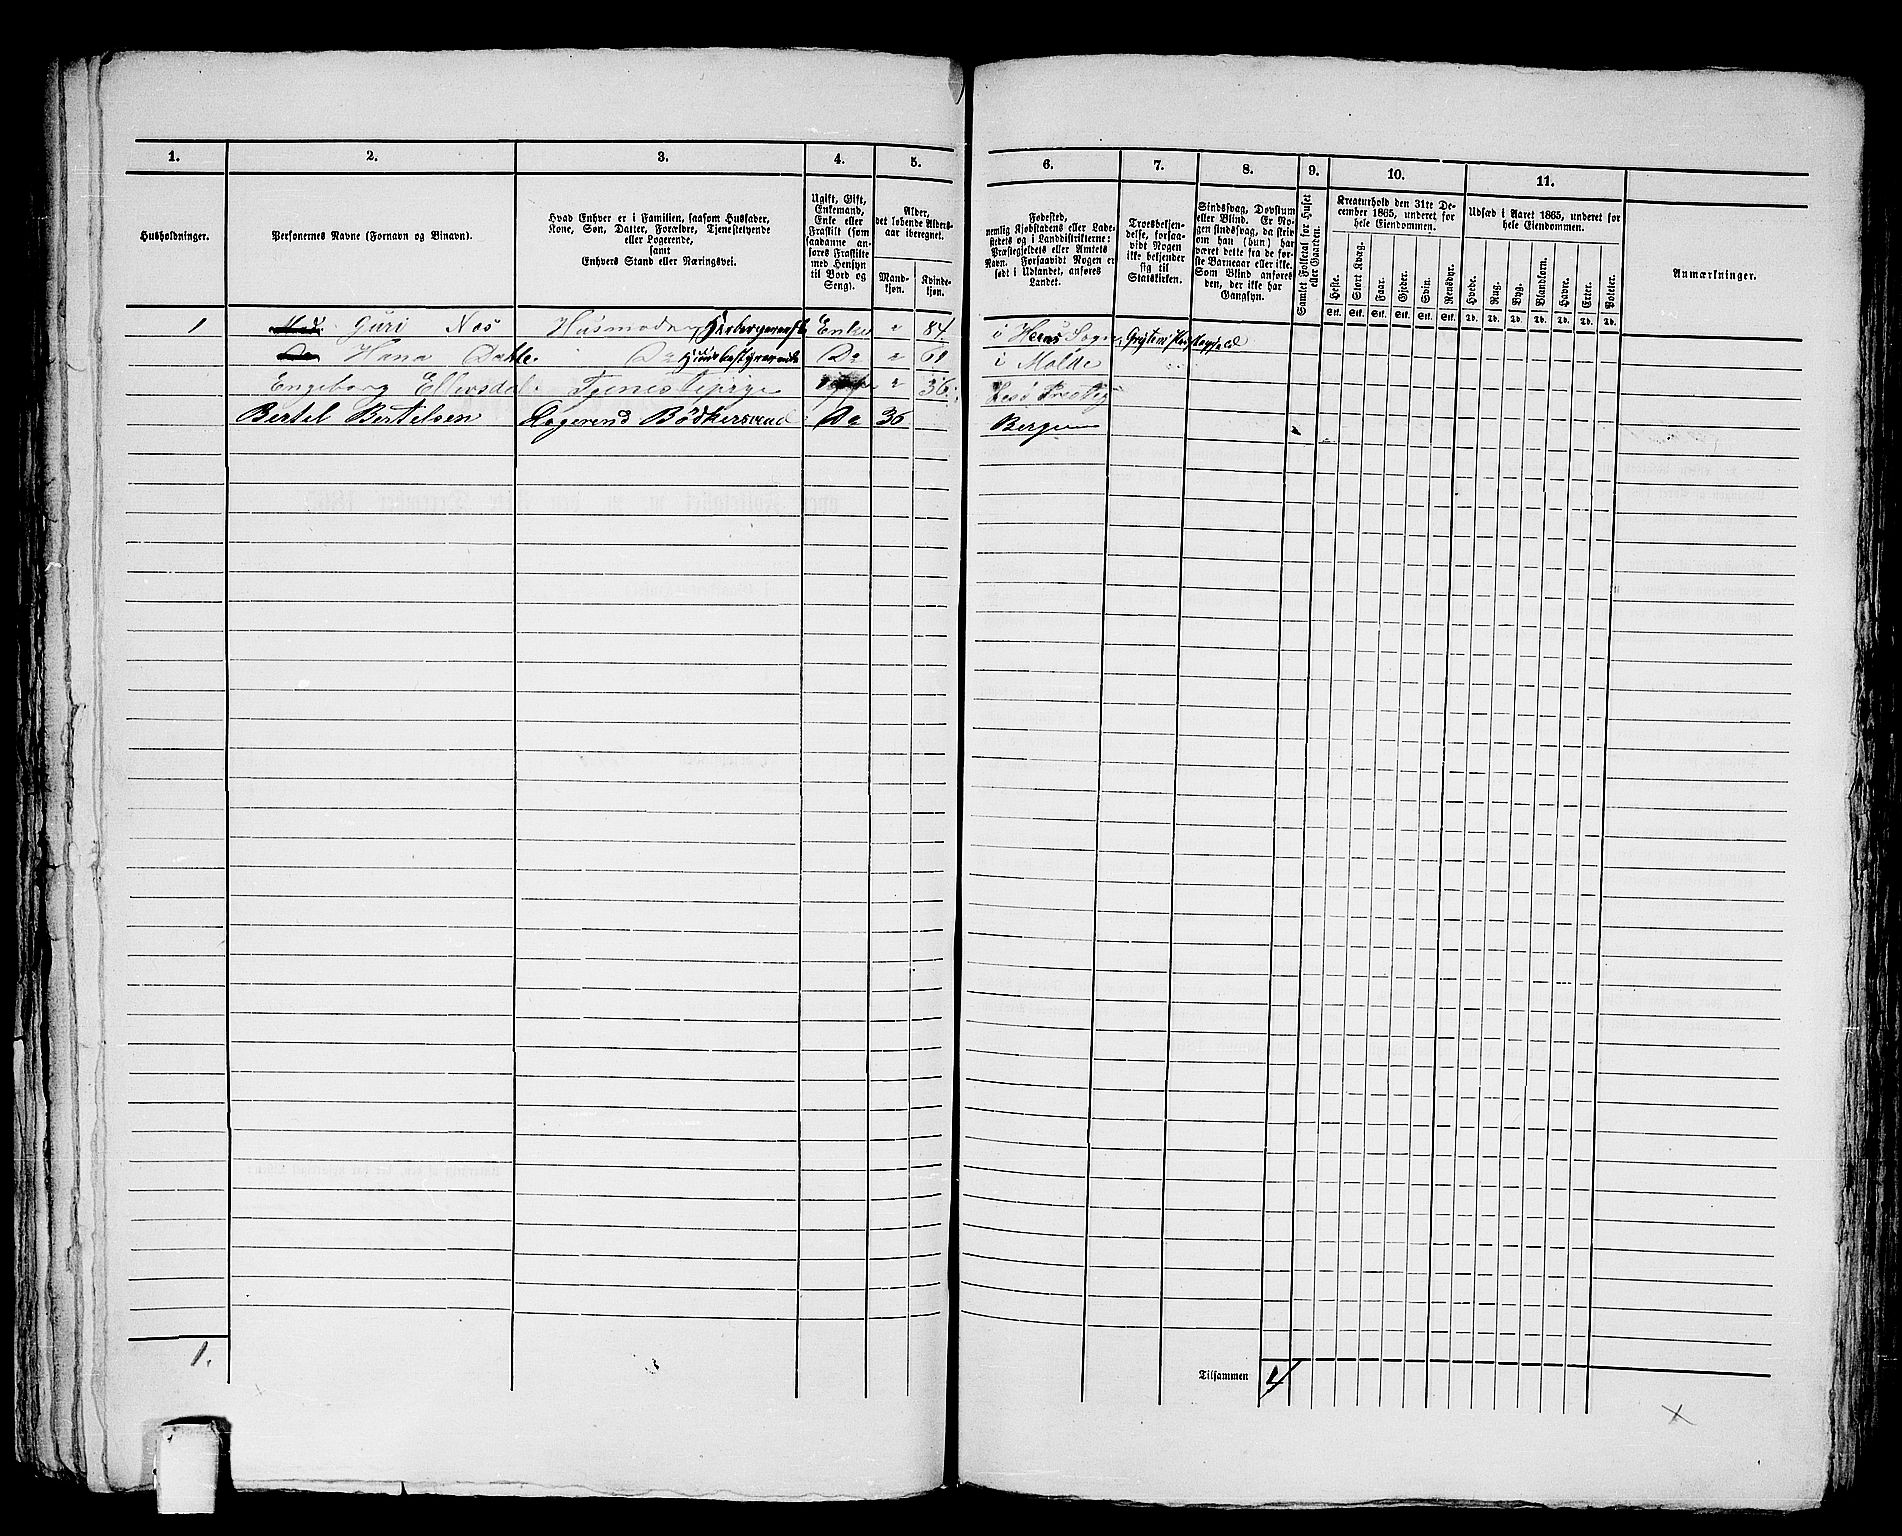 1. 2. 3. 4. 5. 6. 7. 8. 9. 10. 11.
Husholdninger.
Personernes Navne (Fornavn og Binavn).
Hvad Enhver er i Familien, saasom Husfader,
Kone, Søn, Datter, Forældre, Tjenestetyende
eller Logerende,
samt
Enhvers Stand eller Næringsvei.
Ugift, Gift,
Enkemand,
Enke eller
Fraskilt (som
saadanne an-
føres Fraskilte
med Hensyn
til Bord og
Seng).
Alder,
det løbende Alders-
aar iberegnet.
Mand-
kjøn.
Kvinde-
kjøn.
Fødested,
nemlig Kjøbstadens eller Lade-
stedets og i Landdistrikterne:
Præstegjeldets eller Amtets
Navn. Forsaavidt Nogen er
født i Udlandet, anføres
Landet.
Troesbekjen-
delse, forsaa-
vidt Nogen
ikke bekjender
sig til
Statskirken.
Sindssvag, Døvstum
eller Blind. Er No-
gen sindssvag, da skriv
om han (hun) har
været dette fra de før-
ste Barneaar eller ikke.
Som Blind anføres
den, der ikke har
Gangsyn.
Samlet Folketal for Huset
eller Gaarden.
Kreaturhold den 31te De-
cember 1865, underet for
hele Eiendommen.
Heste. Stort Kvæg. Faar. Gjeder. Svin. Rensdyr.
Stk. Stk. Stk. Stk. Stk. Stk.
Udsæd i Aaret 1865, underet for
hele Eiendommen.
Hvede. Rug. Byg. Blandkorn. Havre. Erter. Poteter.
Td. Td. Td. Td. Td. Td. Td.
Anmærkninger.
1 Guri Nos Husmoder Enke " 84 i Herns Sogn
Do Hana Dahle Do Huusbestyrerinde Do " 61 i Molde
Engeborg Tjenestepige " 36
Bertel Bertelsen Logerend Bødkersvend Do 36 Bergen
1.
Tilsammen 4